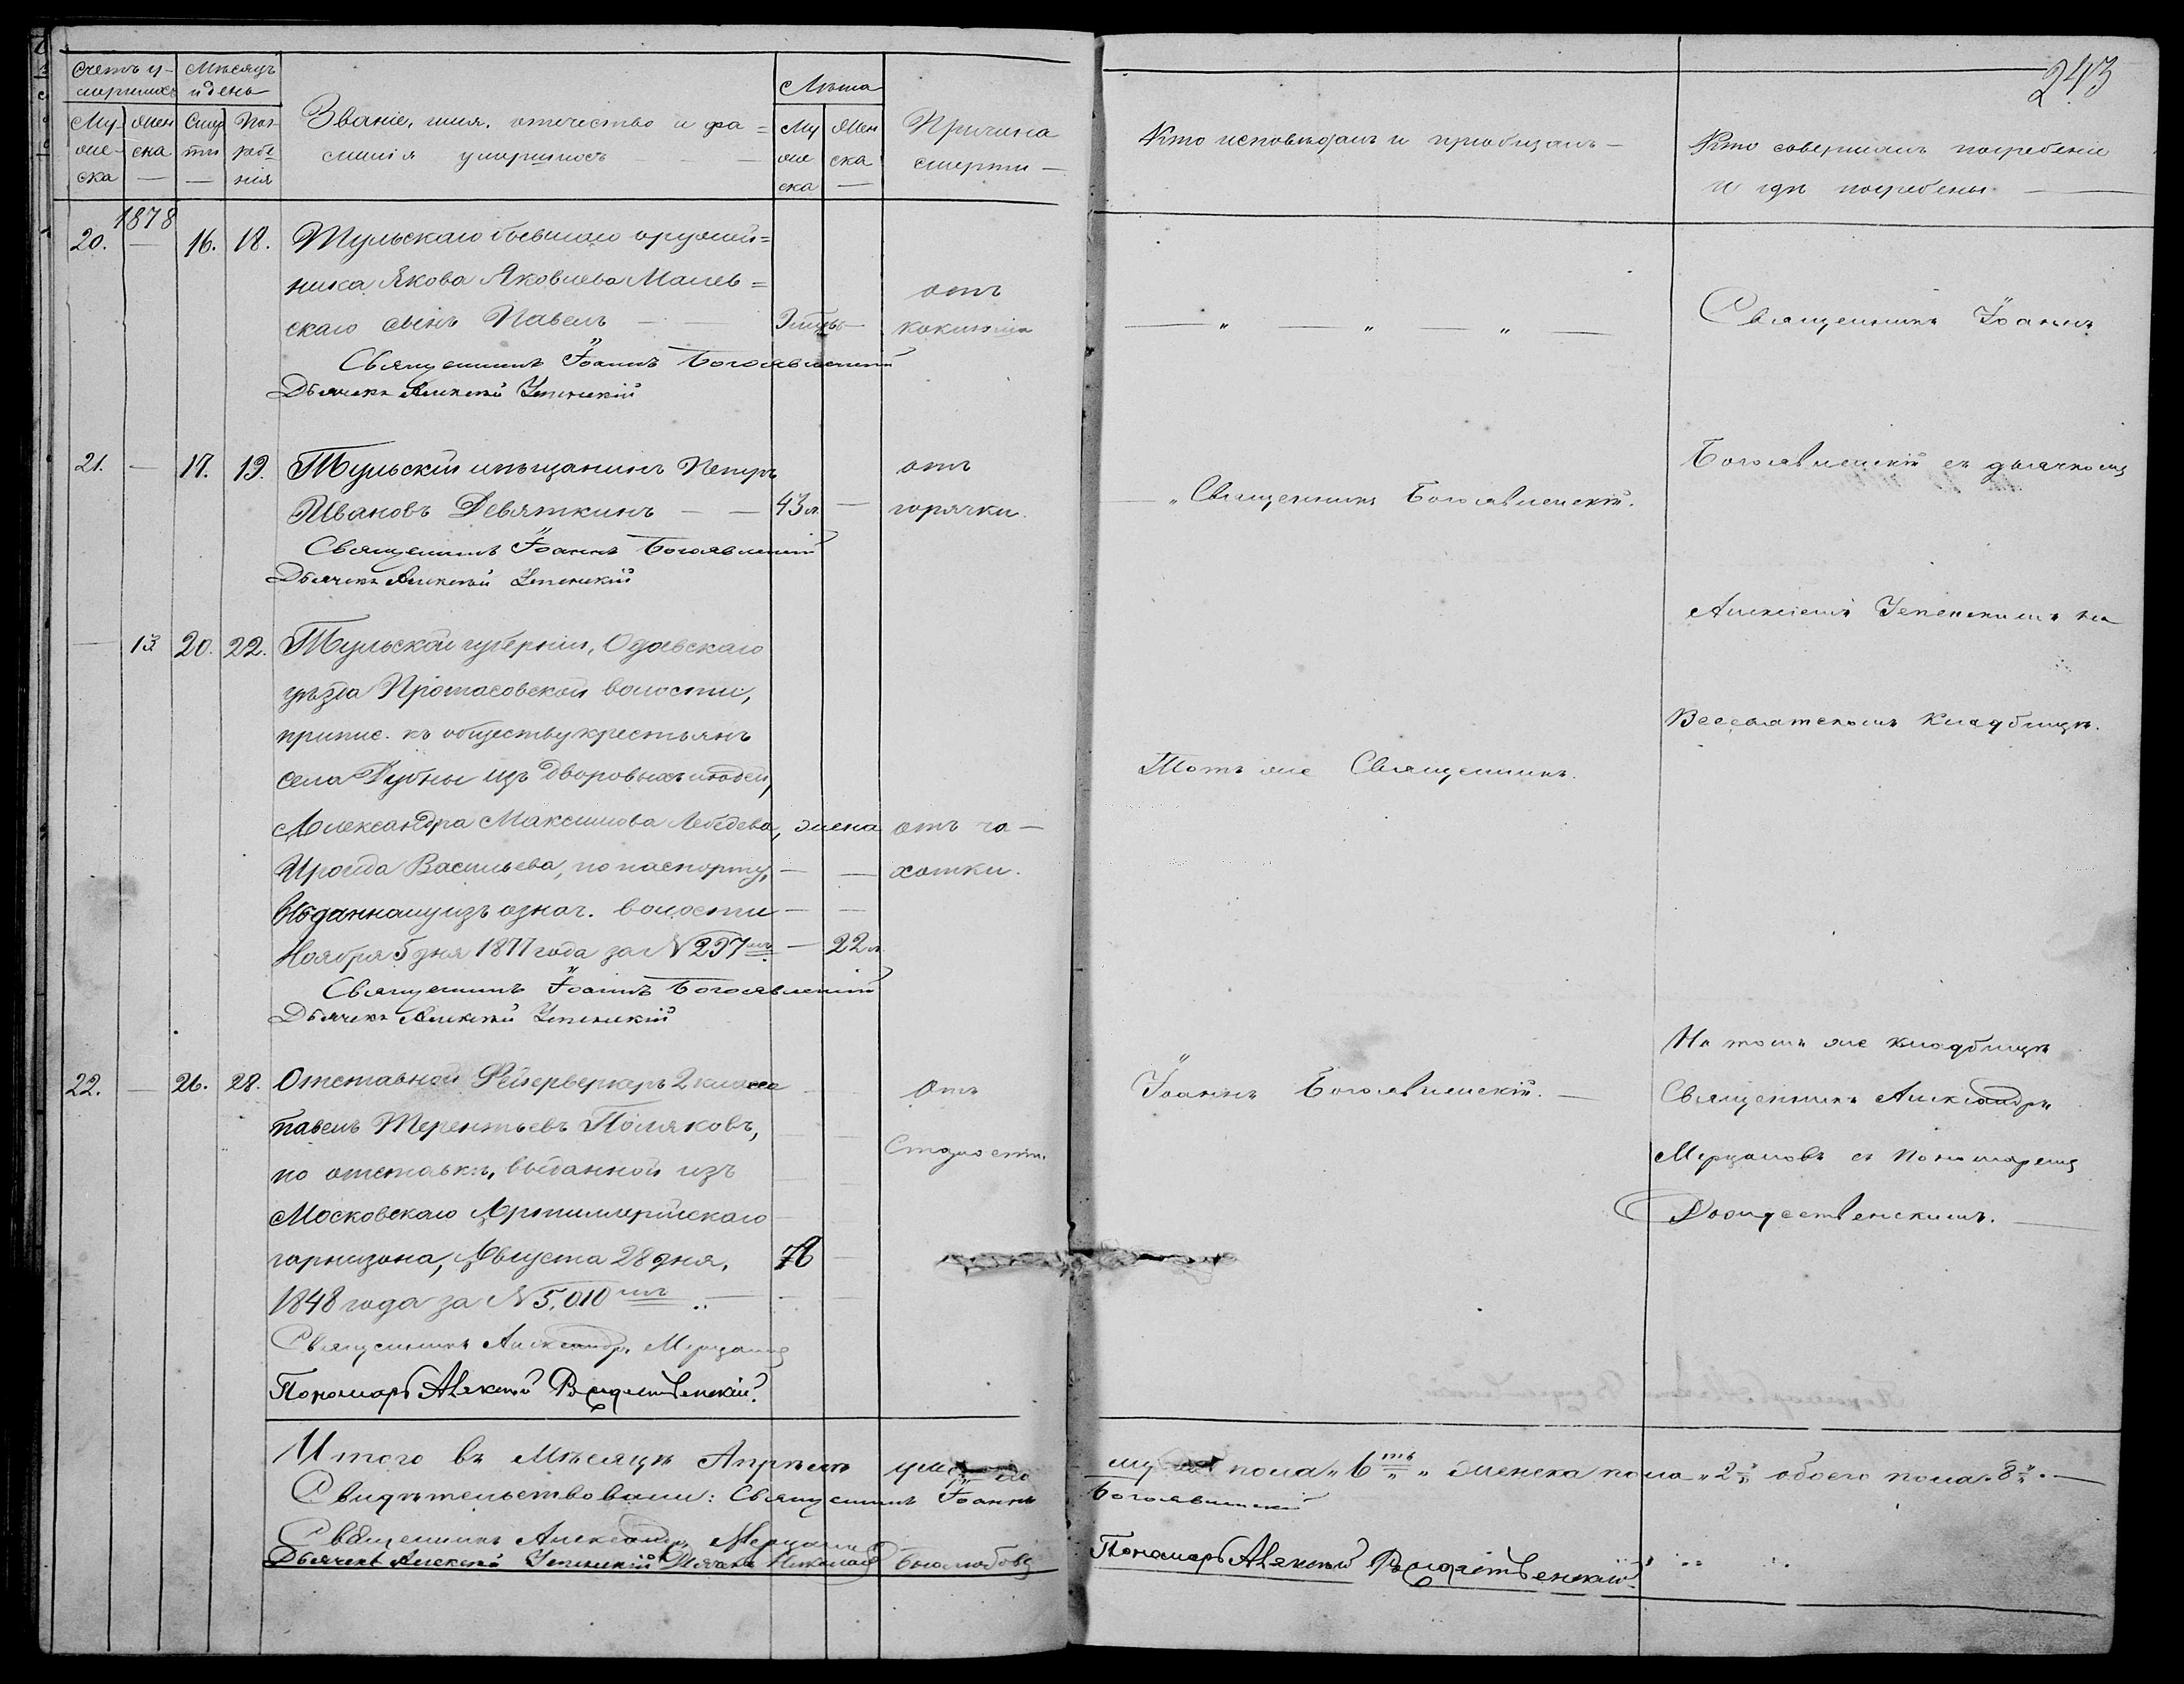 243
Счетъ у-
мершихъ
Мѣсяцъ
и день
Звание, имя, отечество и фа=
милія умершихъ
Лѣта
Причина
смерти
Му
же-
ска
Жен
ска
Смер
ти
Пог
ребе
нія
Му
же
ска
Жен
ска
Кто исповѣдалъ и приобщалъ
Кто совершалъ погребеніе
и гдѣ погребены
1878
20. — 16. 18. Тульскаго бывшаго оружей=
ника Якова Яковлева Малев= отъ
скаго сынъ Павелъ — —
Священникъ Іоаннъ Богоявленскій
Дьячекъ Алексѣй Успенскій
Священникъ Іоаннъ
21. — 17. 19. Тульскій мѣщанинъ Петръ отъ
Ивановъ Девяткинъ — — 43 л. — горячки.
Священникъ Іоаннъ Богоявленскій
Дьячекъ Алексѣй Успенскій
Священникъ Богоявленскій.
Богоявленскій съ дьячкомъ
— 13 20. 22. Тульской губерніи, Одоевскаго
уѣзда Протасовской волости,
припис. къ обществу крестьянъ
села Дубны изъ дворовыхъ людей,
Александра Максимова Лебедева, жена отъ ча—
Ираида Васильева, по паспорту, — — хотки.
выданному изъ означ. волости — —
Ноября 5 дня 1877 года за № 237мъ — 22 л.
Священникъ Іоаннъ Богоявленскій
Дьячекъ Алексѣй Успенскій
Тотъ же Священникъ.
Алексіемъ Успенскимъ на
Всесвятскомъ кладбищѣ.
22. — 26. 28. Отставной Фейерверкеръ 2 класса — — Отъ
Павелъ Терентьевъ Поляковъ, — — Старости.
по отставкѣ, выданной изъ
Московскаго Артиллерійскаго
гарнизона, Августа 28 дня, 78 —
1848 года за № 5,010мъ — —
Священникъ Александръ Мерцаловъ
Пономарь Алексѣй Рождественскій
Іоаннъ Богоявленскій. —
На томъ же кладбищѣ
Священникъ Александръ
Мерцаловъ съ Пономаремъ
Рождественскимъ. —
Итого въ Мѣсяцѣ Апрѣлѣ пола „ 6ть „ женска пола „ 2 „ обоего пола „ 8 „ —
Свидѣтельствовали: Священникъ Іоаннъ Богоявленскій
Священникъ Александръ Мерцаловъ
Дьячекъ Алексѣй Успенскій Дьячекъ Николай Боголюбовъ Пономарь Алексѣй Рождественскій